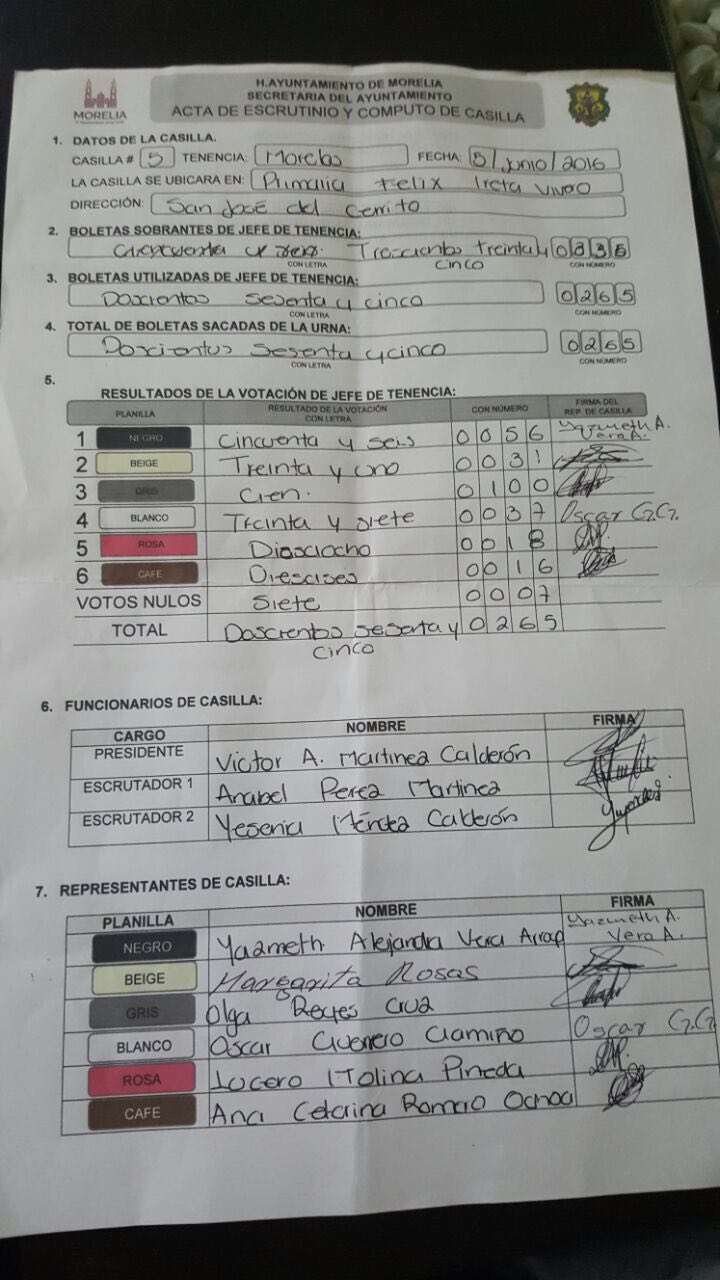 MORELIA
H.AYUNTAMIENTO DE MORELIA
SECRETARIA DEL AYUNTAMIENTO
ACTA DE ESCRUTINIO Y COMPUTO DE CASILLA
1. DATOS DE LA CASILLA.
CASILLA # 5 TENENCIA: Morelos FECHA: 5/Junio/2016
LA CASILLA SE UBICARA EN: Primaria Felix Ireta Vivao
DIRECCIÓN: San José del Cerrito
2. BOLETAS SOBRANTES DE JEFE DE TENENCIA:
Trescientos treinta y 0335
cinco
CON LETRA CON NÚMERO
3. BOLETAS UTILIZADAS DE JEFE DE TENENCIA:
Doscientos sesenta y cinco 0265
CON LETRA CON NÚMERO
4. TOTAL DE BOLETAS SACADAS DE LA URNA:
Doscientos sesenta y cinco 0265
CON LETRA CON NÚMERO
5.
RESULTADOS DE LA VOTACIÓN DE JEFE DE TENENCIA:
PLANILLA RESULTADO DE LA VOTACIÓN CON LETRA CON NÚMERO FIRMA DEL REP. DE CASILLA
1 NEGRO Cincuenta y seis 0056 Yazmeth A. Vera A.
2 BEIGE Treinta y uno 0031
3 GRIS Cien. 0100
4 BLANCO Treinta y siete 0037 Oscar G.G.
5 ROSA Diosciocho 0018
6 CAFE Diesciseis 0016
VOTOS NULOS Siete 0007
TOTAL Doscientos sesenta y 0265
cinco
6. FUNCIONARIOS DE CASILLA:
CARGO NOMBRE FIRMA
PRESIDENTE Victor A. Martinez Calderón
ESCRUTADOR 1 Anabel Perez Martinez
ESCRUTADOR 2 Yesenia Méndez Calderón
7. REPRESENTANTES DE CASILLA:
PLANILLA NOMBRE FIRMA
NEGRO Yazmeth Alejandra Vera Yazmeth A. Vera A.
BEIGE Margarita Rosas
GRIS Olga Reyes Cruz
BLANCO Oscar Guerrero Oscar G.G.
ROSA Lucero Molina Pineda
CAFE Ana Romero Ochoa